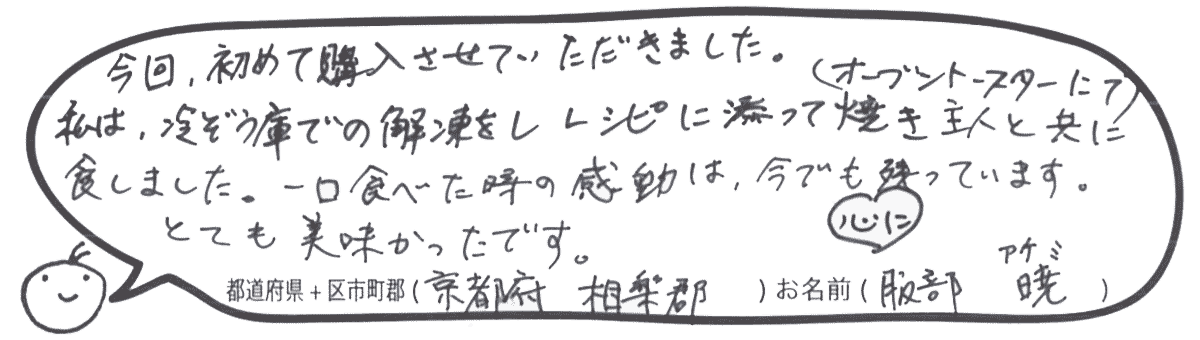 今回、初めて購入させていただきました。
(オーブントースターにて)
私は、冷ぞう庫での解凍をし レシピに添って焼き主人と共に
食しました。一口食べた時の感動は、今でも残っています。
心に
とても美味かったです。
アケミ
都道府県+区市町郡(京都府 相楽郡 )お名前(服部 暁 )